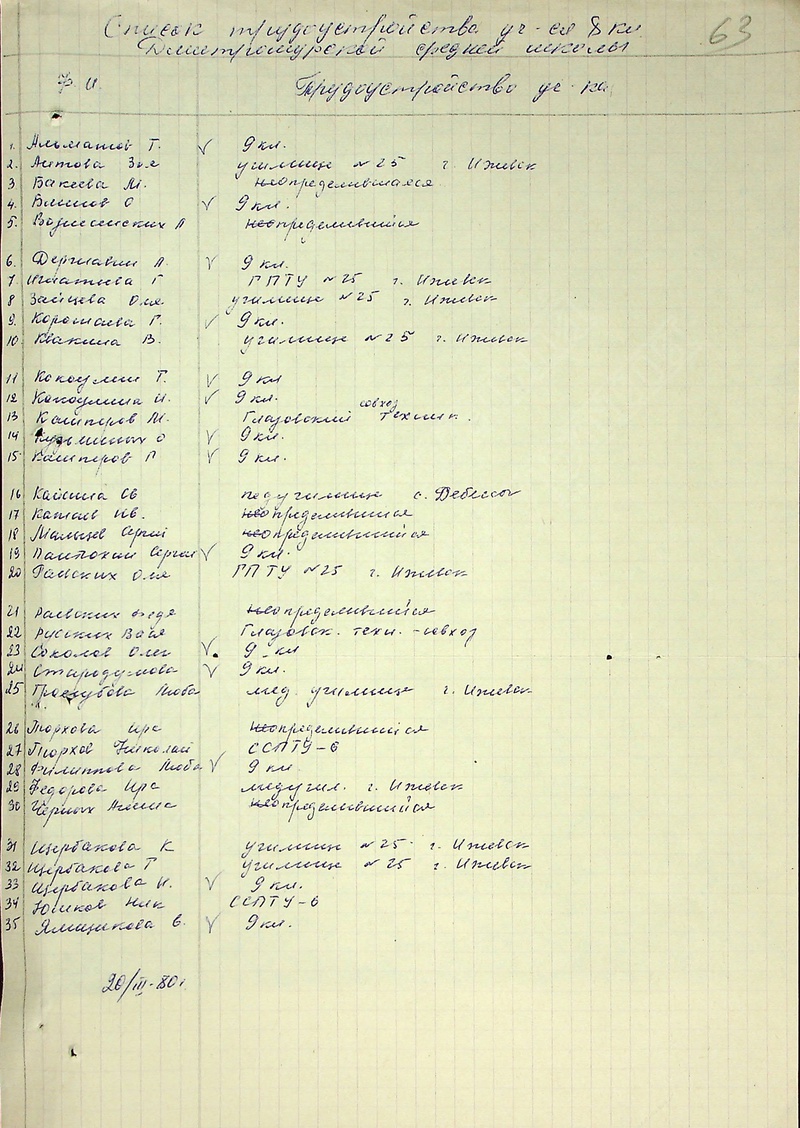 Список трудоустройства уч-ся 8 кл.
63
Дмитрошурской средней школы
Ф. И. Трудоустройство уч-ка
1. Альматов Г. V 9 кл.
2. Аитова Зоя училище №25 г. Ижевск
3 Бакеева М. неопределившаяся
4. Блинов О V 9 кл.
5. Вознесенских Л неопределившийся
6. Державин А. V 9 кл.
7 Игнатьева Г ГПТУ №25 г. Ижевск
8 Зайцева Оля училище №25 г. Ижевск
9. Коротаева Г. V 9 кл.
10 Квакина В. училище №25 г. Ижевск
11 Кокоулин Г. V 9 кл
12 Кокоулина И. V 9 кл.
совхоз
13 Кантеров М. Глазовский техник.
14 Кузьминых О V 9 кл.
15 Кантеров П V 9 кл.
16 Кайсина Св педучилище с. Дебессы
17 Катаев Ив. неопределившися
18 Малыцев Сергей неопределившийся
19 Пантюхин Сергей V 9 кл.
20 Раевских Оля ГПТУ №25 г. Ижевск
21 Раевских Федя неопределившийся
22 Русских Валя Глазовск. техн. - совхоз
23 Соколов Олег V. 9 - кл
24 Стародумова V 9 кл.
25 Трогубова Люба мед. училище г. Ижевск
26 Тюрхова Ира неопределившийся
27 Тюрхов Николай ССПТУ-6
28 Филиппова Люба V 9 кл.
29 Федорова Ира медучил. г. Ижевск
30 Черных неопределившийся
31 Щербакова К училище №25 г. Ижевск
32 Щербакова Г училище №25 г. Ижевск
33 Щербакова Н. V 9 кл.
34 Юшков Ник ССПТУ-6
35 Ямщикова Е. V 9 кл.
20/III-80 г